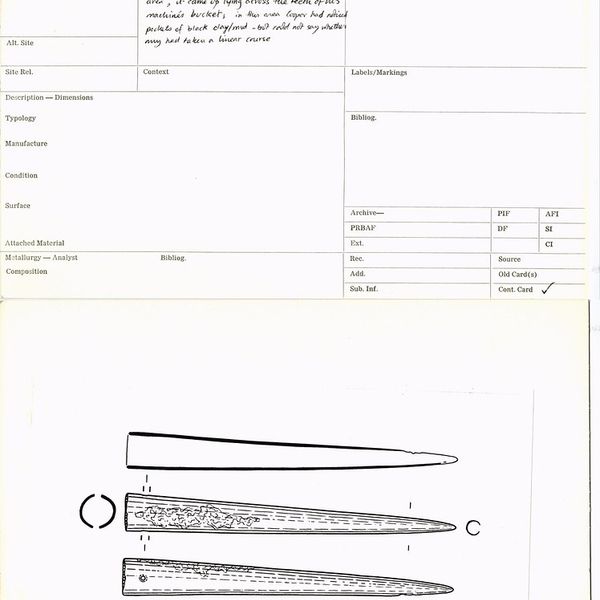 area, it came up lying across the teeth of his
machine's bucket; in this area Cooper had noticed
pockets of black clay/mud - but could not say whether
they had taken a linear course
Alt. Site
Site Rel.
Context
Labels/Markings
Description — Dimensions
Typology
Bibliog.
Manufacture
Condition
Surface
Archive—
PIF
AFI
PRBAF
DF
SI
Attached Material
Ext.
CI
Metallurgy — Analyst
Bibliog.
Rec.
Source
Composition
Add.
Old Card(s)
Sub. Inf.
Cont. Card ✓